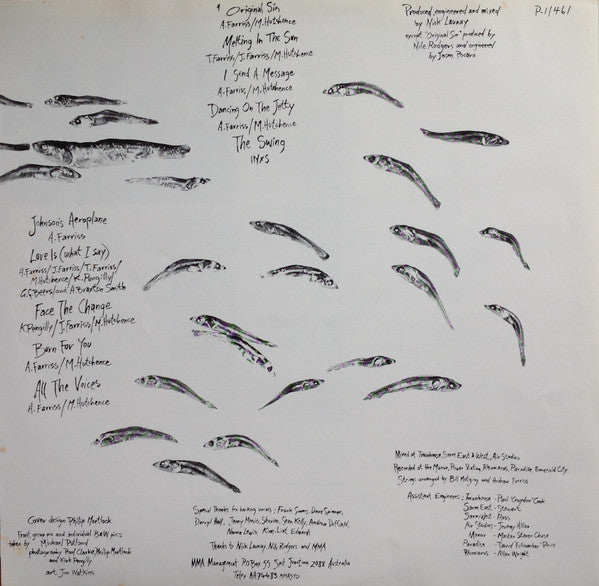 * Original Sin
A. Farriss/M. Hutchence
Melting In The Sun
T. Farriss/J. Farriss/M. Hutchence
I Send A Message
A. Farriss/M. Hutchence
Dancing On The Jetty
A. Farriss/M. Hutchence
The Swing
INXS
Produced, engineered and mixed
by Nick Launay
except "Original Sin" produced by
Nile Rodgers and engineered
by Jason
P-11461
Johnson's Aeroplane
A. Farriss
Love Is (what I say)
A. Farriss/J. Farriss/T. Farriss/
M. Hutchence/K. Pengilly/
G.G Beers/and A. Braxton Smith
Face The Change
K Pengilly/J. Farriss/M. Hutchence
Burn For You
A. Farriss/M. Hutchence
All The Voices
A. Farriss/M. Hutchence
Cover design Philip Mortlock
Front, group pic and individual B&W pics
taken by Michael Putland
photography Paul Clarke, Philip Mortlock
and Kirk Pengilly
art: Jim Watkins
Special Thanks for backing vocals - Dave Skinner,
Daryl Hall, Jenny Morris, Sherine, Sean Kelly, Andrew Duffield,
Thanks to Nick Launay, Nile Rodgers and MMA
MMA Management P.O Box 55 Spit Junction 2088 Australia
Mixed at Townhouse, Sarm East & West, Air Studios
Recorded at the Manor, Power Station, Rhinoceros, Paradise, Emerald City
Strings arranged by Bill and Andrew Farriss
Assistant Engineers; Townhouse - Paul 'Croydon' Cook
Sarm East - Stewart
Sarm West - Ross
Air Studios - Jeremy Allom
Manor - Steven Chase
Paradise - David 'Price
Rhinoceros - Allan Wright